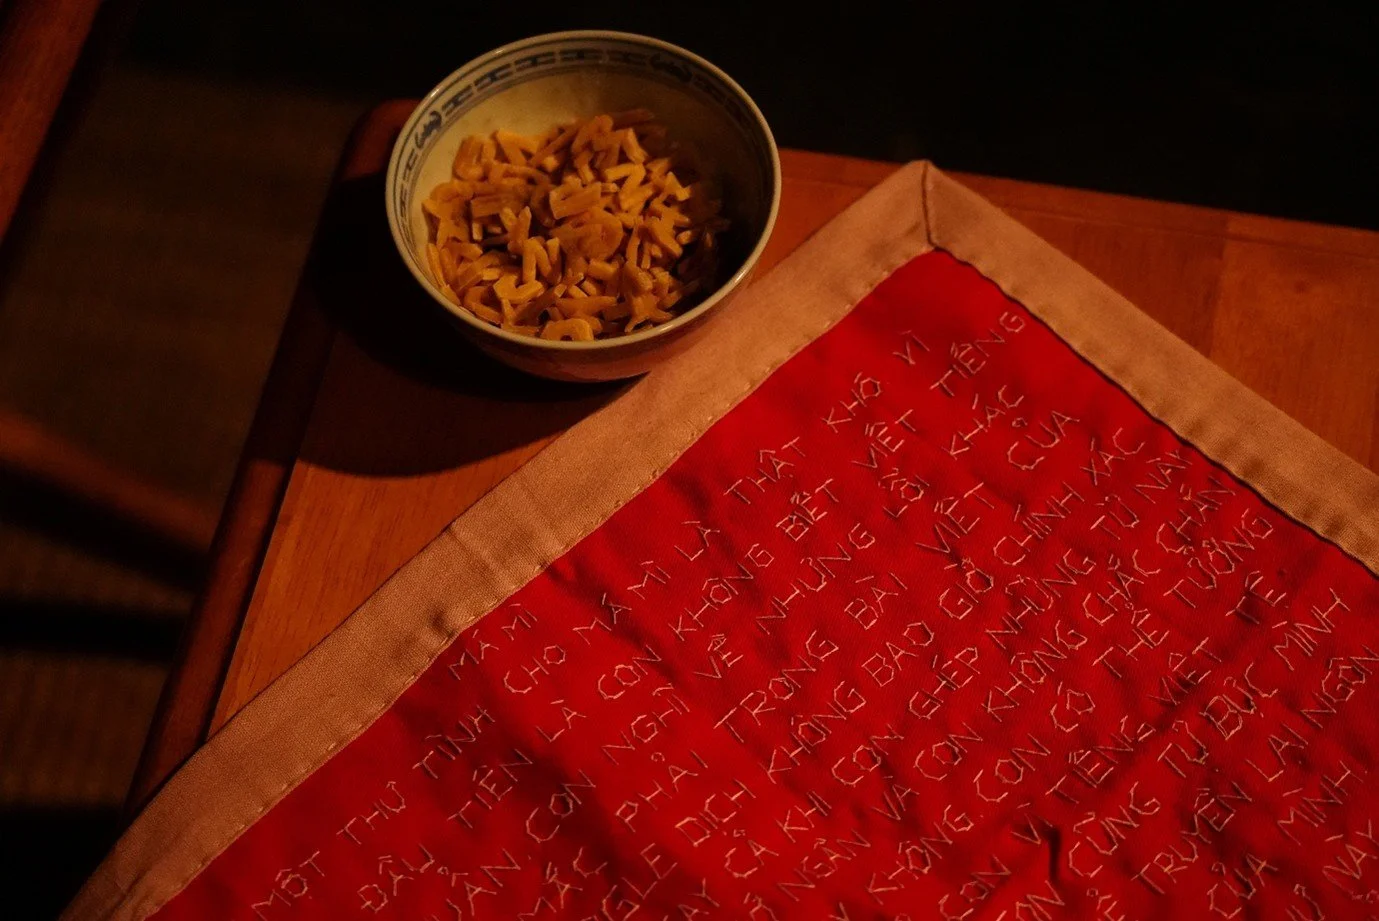 MÁ MÌ
MỘT THƯ TÌNH CHO MÁ MÌ LÀ THẬT KHÓ VÌ
ĐẦU TIÊN LÀ CON KHÔNG BIẾT VIẾT TIẾNG
CON NGHĨ VỀ NHỮNG LỖI KHÁC
MẮC PHẢI TRONG BÀI VIẾT CỦA
DỊCH KHÔNG BAO GIỜ CHÍNH XÁC
CẢ KHI CON GHÉP NHỮNG TỪ NÀY
NGÂN VÀ CON KHÔNG CHẮC CHẮN
KHÔNG. CON CÓ THỂ TƯỞNG
CON VÌ TIẾNG VIỆT TỆ.
CŨNG TỰ BỰC MÌNH
TRUYỀN LẠI NGÔN
CỦA MÌNH.
NÀY